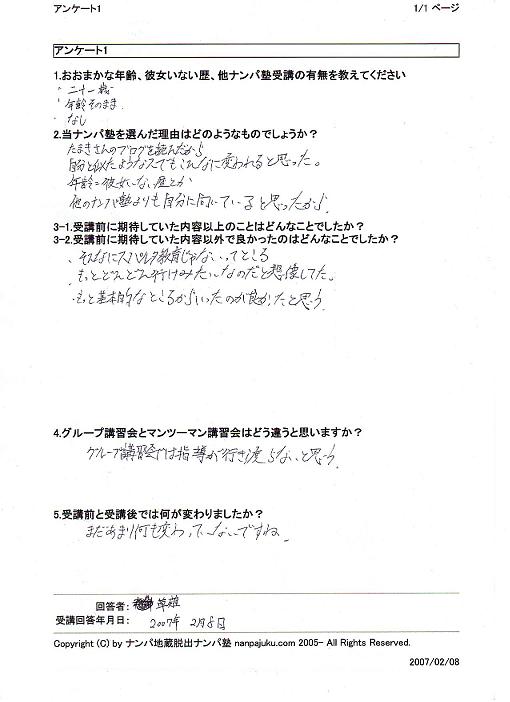 アンケート1
1/1 ページ
アンケート1
1.おおまかな年齢、彼女いない歴、他ナンパ塾受講の有無を教えてください
・二十一歳
・年齢そのまま
・なし
2.当ナンパ塾を選んだ理由はどのようなものでしょうか？
たまきさんのブログを読んだから
自分と似たような人でもこんなに変われると思った。
年齢=彼女いない歴とか
他のナンパ塾よりも自分に向いていると思ったから
3-1.受講前に期待していた内容以上のことはどんなことでしたか？
3-2.受講前に期待していた内容以外で良かったのはどんなことでしたか？
・そんなにスパルタ教育じゃないってところ
もっとどんどん行けみたいなのだと想像してた。
・もっと基本的なところからいったのが良かったと思う
4.グループ講習会とマンツーマン講習会はどう違うと思いますか？
グループ講習会では指導が行き渡らないと思う
5.受講前と受講後では何が変わりましたか？
まだあまり何も変わっていないですね。
回答者： 草雄
受講回答年月日： 2007年 2月8日
Copyright (C) by ナンパ地蔵脱出ナンパ塾 nanpajuku.com 2005- All Rights Reserved.
2007/02/08